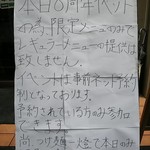 本日8周年イベント
限定メニューのみで
レギュラーメニューの提供は
致しません。
イベントは事前ネット予約
制となっております。
予約されている方のみ参加
できます。
つけ麺一燈で本日のみ